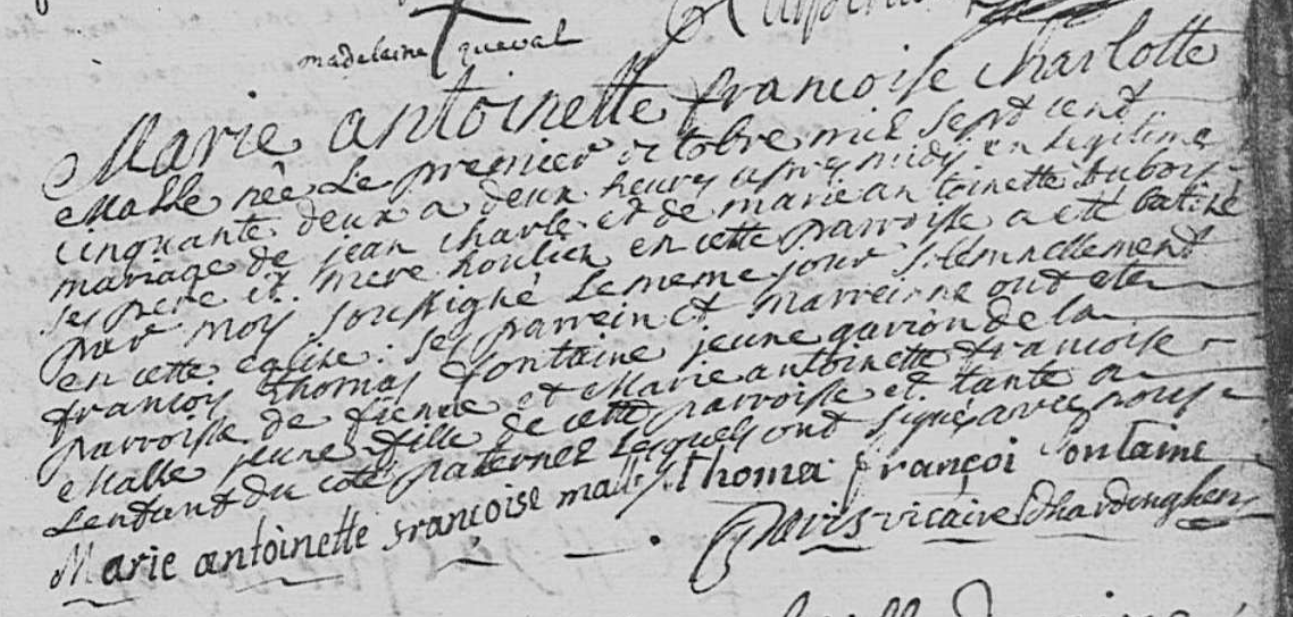 madelaine queval
Marie antoinette francoise Charlotte
Malle née Le premier octobre mil sept cent
cinquante deux a deux heures apres midy en legitime
mariage de jean charle et de marie antoinette dubois
ses pere et mere houlieu en cette parroisse a eté batisé
par moy soussigné Le meme jour solemnellement
en cette eglise. Ses parrein et marreinne ont ete
françois thomas fontaine jeune garçon de la
parroisse de fienne et Marie antoinette francoise
Malle jeune fille de cette parroisse et tante a
Lenfant du coté paternel Lesquels ont signé avec nous
Marie antoinette françoise malle Thoma françoi fontaine
vicaire dhardinghen